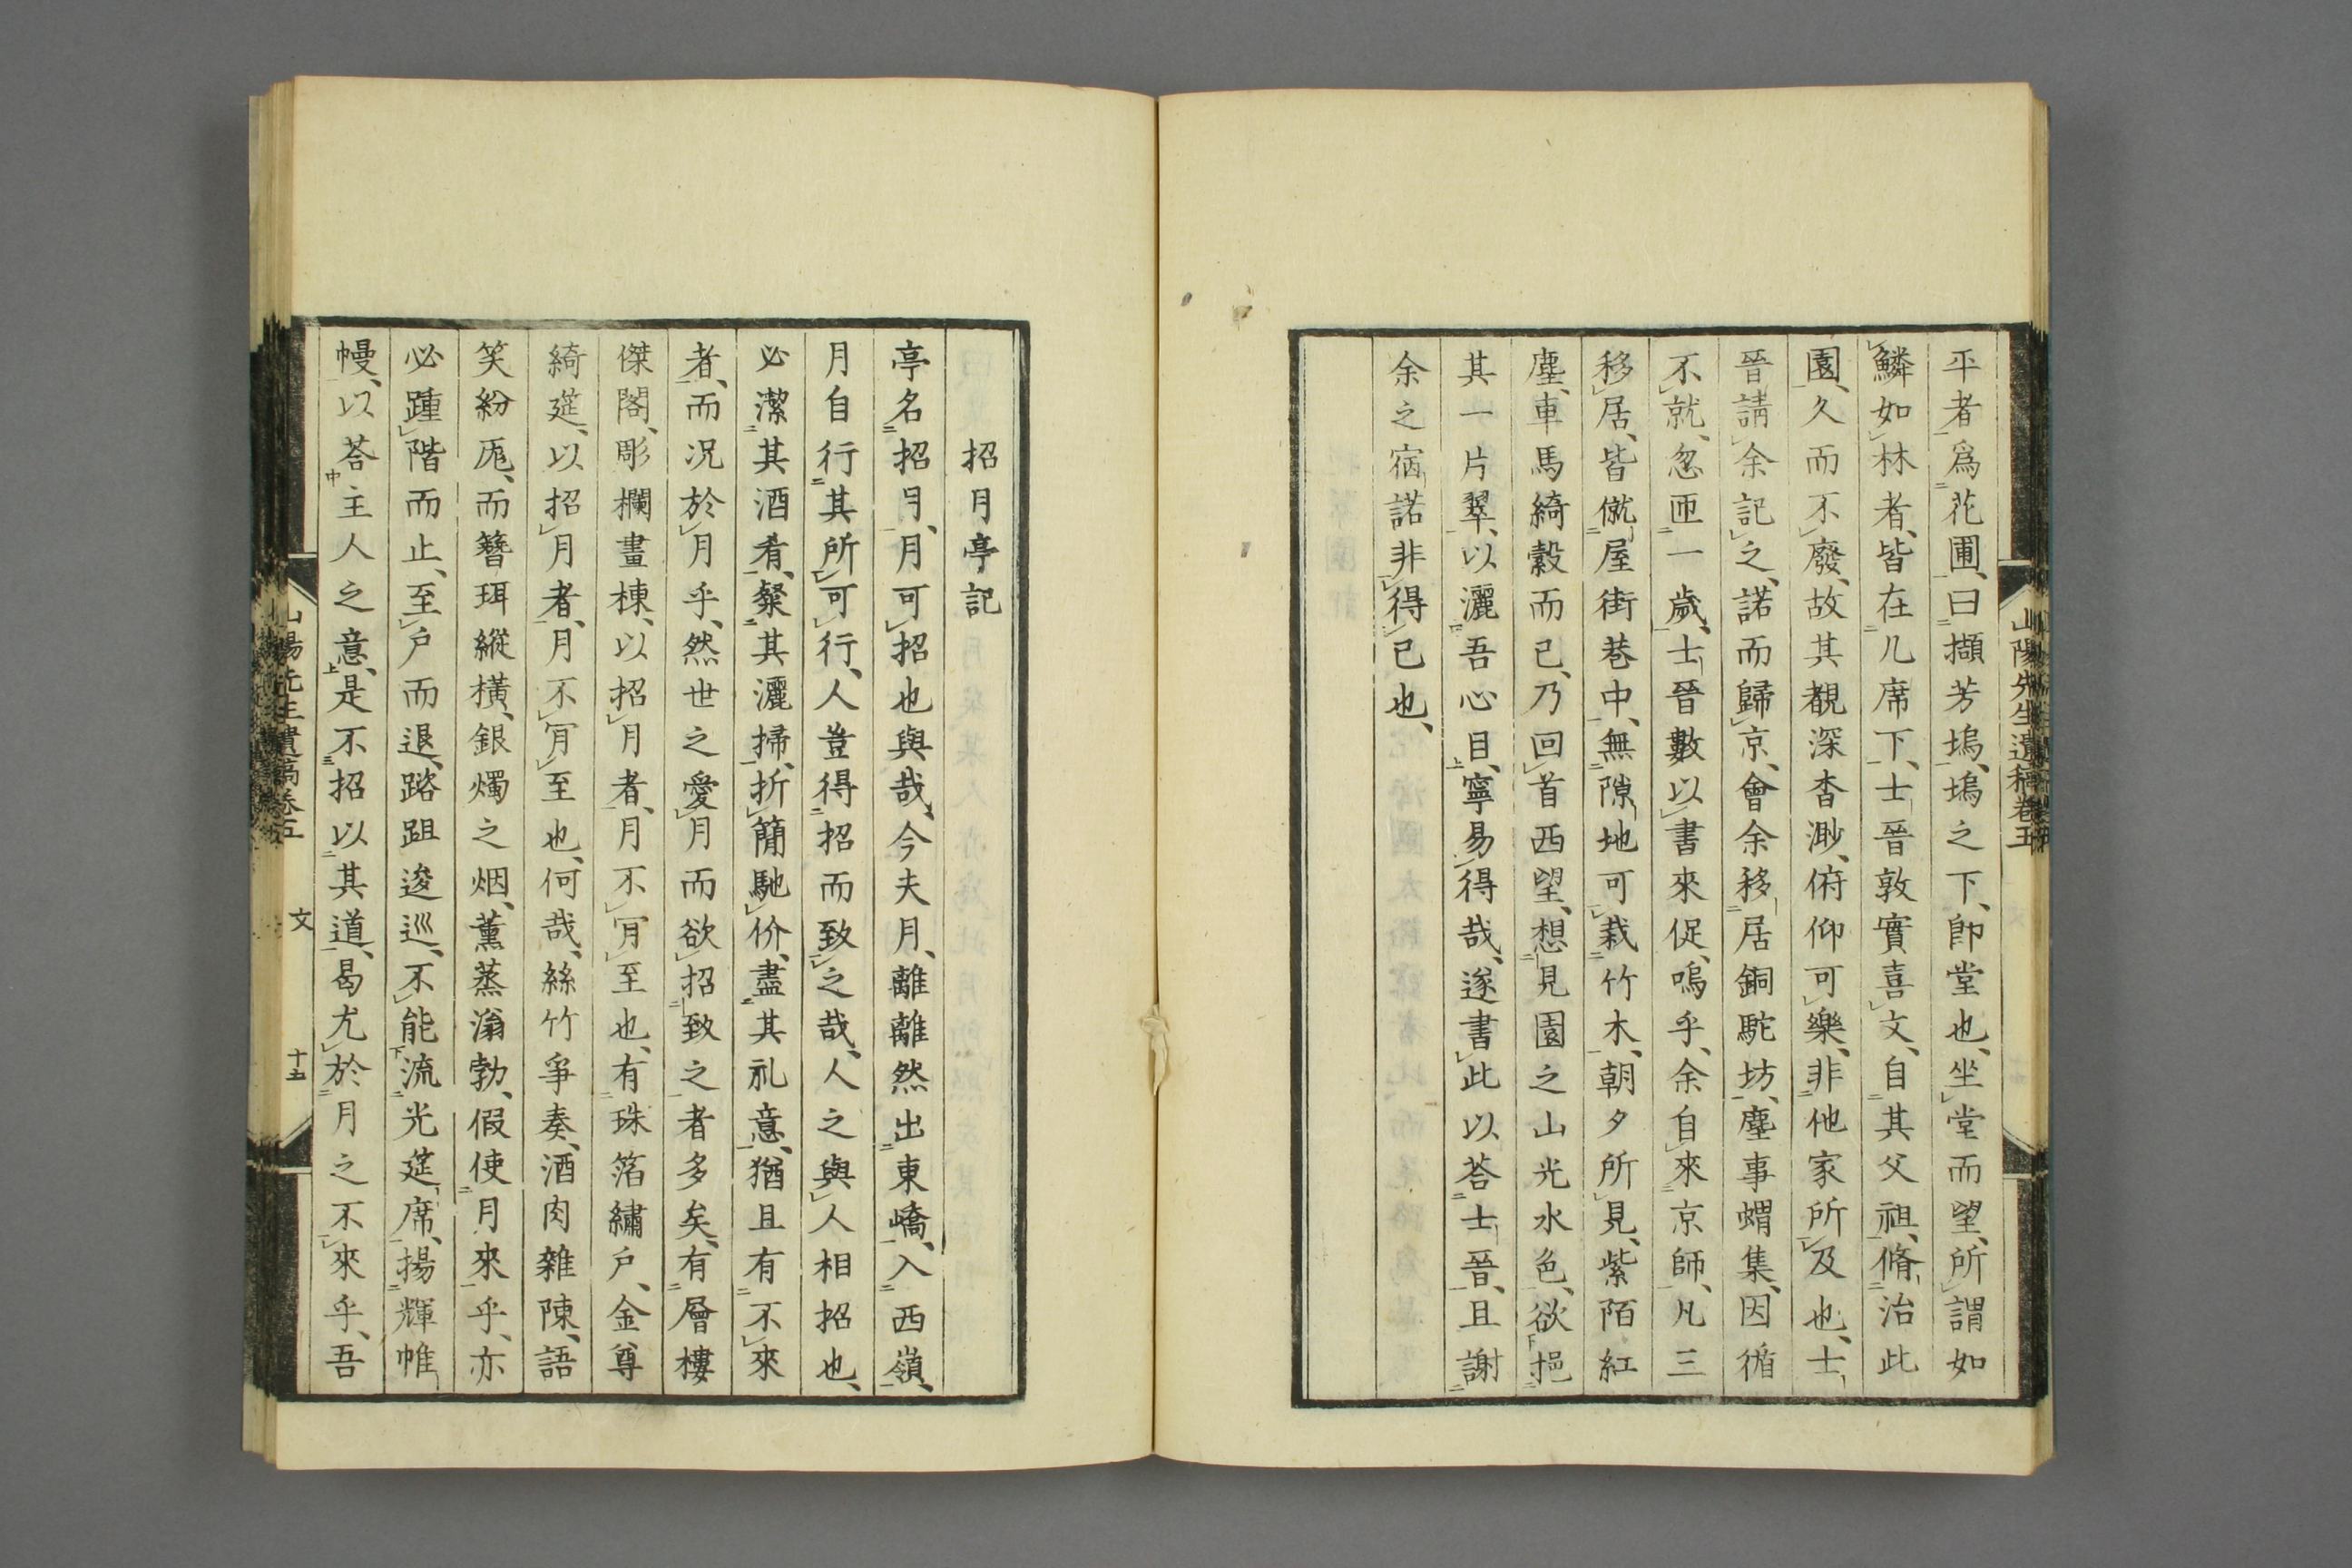 平者爲花圃、曰擷芳塢、塢之下、卽堂也、坐堂而望、所謂如
鱗如林者、皆在几席下、士晉敦實喜文、自其父祖、脩治此
園、久而不廢、故其覩深杳渺、俯仰可樂、非他家所及也、士
晉請余記之、諾而歸京、會余移居銅駝坊、塵事蝟集、因循
不就、忽匝一歲、士晉數以書來促、嗚乎、余自來京師、凡三
移居、皆僦屋街巷中、無隙地可栽竹木、朝夕所見、紫陌紅
塵、車馬綺縠而已、乃回首西望、想見園之山光水色、欲挹
其一片翠、以灑吾心目、寧易得哉、遂書此以荅士晉、且謝
余之宿諾非得已也、
山陽先生遺稿卷五
招月亭記
亭名招月、月可招也與哉、今夫月、離離然出東嶠、入西嶺、
月自行其所可行、人豈得招而致之哉、人之與人相招也、
必潔其酒肴、粲其灑掃、折簡馳价、盡其礼意、猶且有不來
者、而况於月乎、然世之愛月而欲招致之者多矣、有層樓
傑閣、彫欄畫棟、以招月者、月不肎至也、有珠箔繡戶、金尊
綺筵、以招月者、月不肎至也、何哉、絲竹爭奏、酒肉雜陳、語
笑紛厖、而簪珥縱橫、銀燭之烟、薰蒸滃勃、假使月來乎、亦
必踵階而止、至戶而退、踏跙逡巡、不能流光筵席、揚輝帷
幔、以荅主人之意、是不招以其道、曷尤於月之不來乎、吾
山陽先生遺稿卷五 文 十五